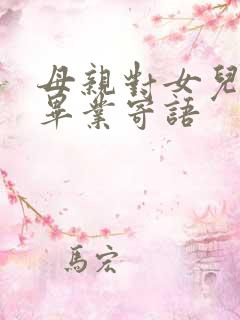 母親對女兒
畢業寄語
馬宏